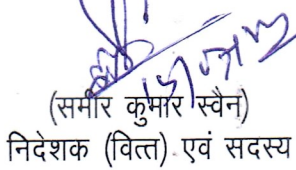 (समीर कुमार स्वैन)
निदेशक (वित्त) एवं सदस्य